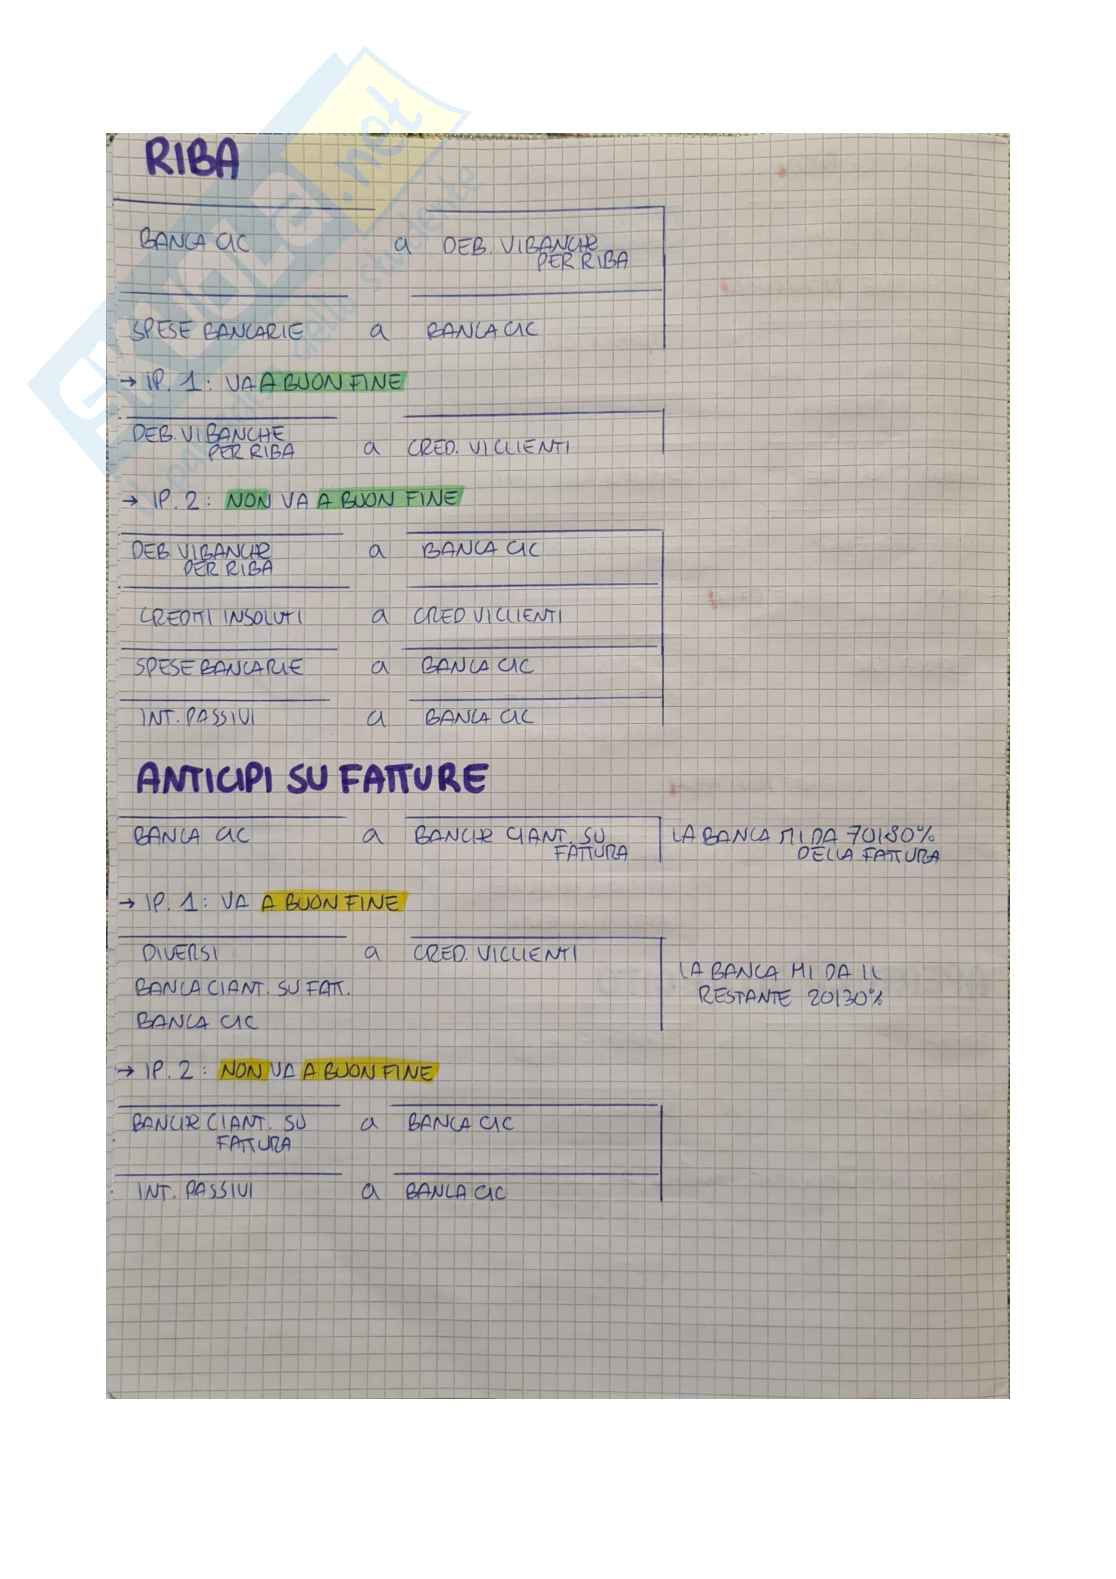 RIBA
BANCA C/C a DEB. V/BANCHE
PER RIBA
SPESE BANCARIE a BANCA C/C
→ IP. 1: VA A BUON FINE
DEB. V/BANCHE
PER RIBA a CRED. V/CLIENTI
→ IP. 2: NON VA A BUON FINE
DEB V/BANCHE a BANCA C/C
PER RIBA
CREDITI INSOLUTI a CRED V/CLIENTI
SPESE BANCARIE a BANCA C/C
INT. PASSIVI a BANCA C/C
ANTICIPI SU FATTURE
BANCA C/C a BANCHE C/ANT. SU LA BANCA MI DA 70/80%
FATTURA DELLA FATTURA
→ IP. 1: VA A BUON FINE
DIVERSI a CRED. V/CLIENTI
LA BANCA MI DA IL
BANCA C/ANT. SU FATT.
RESTANTE 20/30%
BANCA C/C
→ IP. 2: NON VA A BUON FINE
BANCHE C/ANT. SU a BANCA C/C
FATTURA
INT. PASSIVI a BANCA C/C